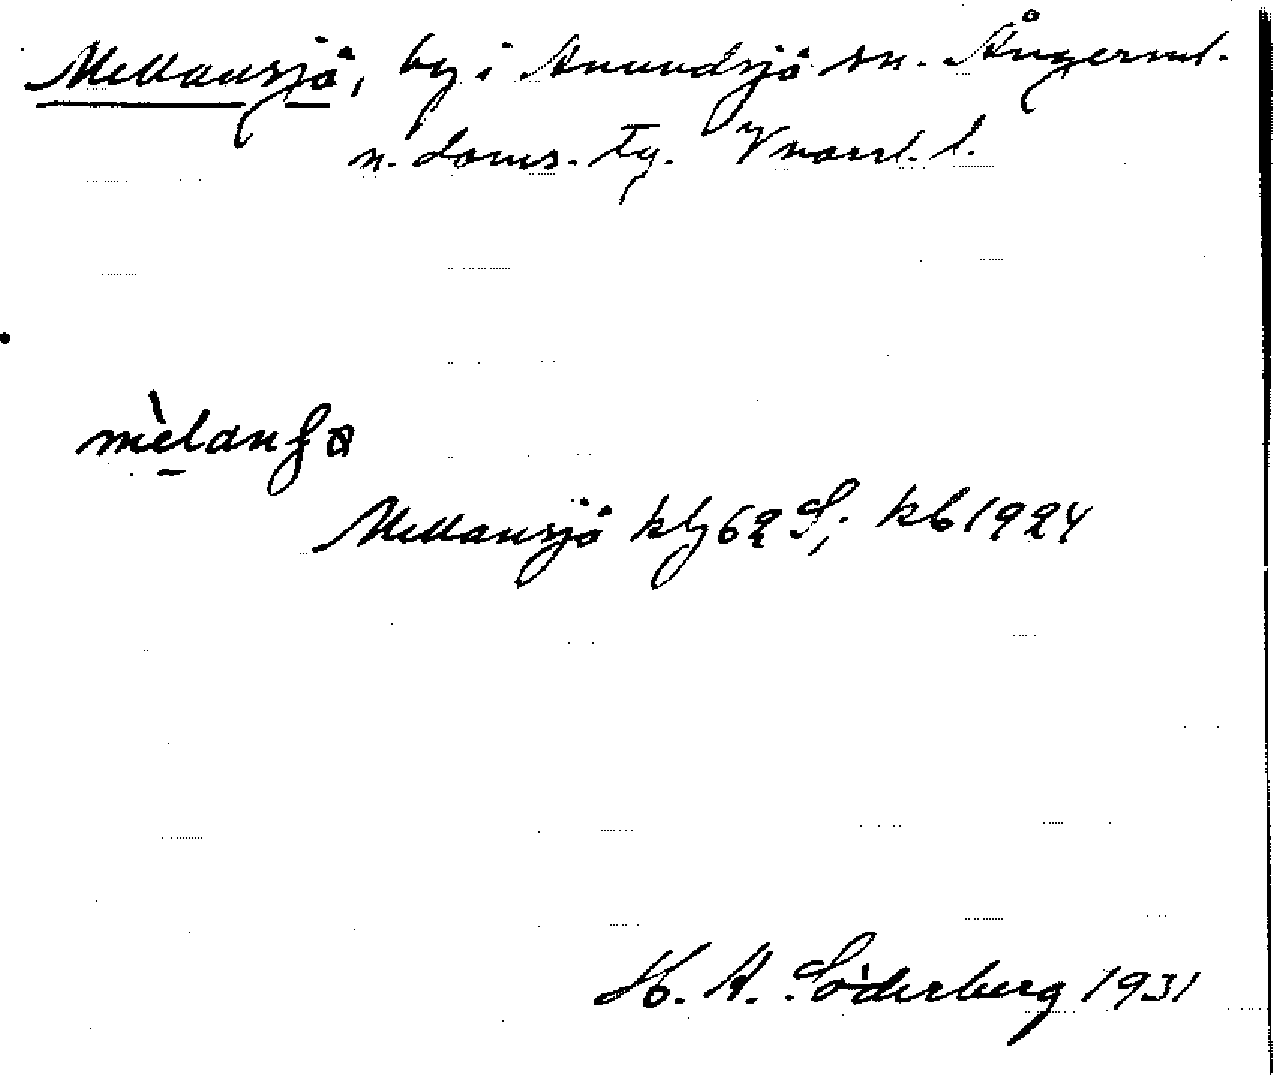 Mellansjö, by i Anundsjö sn. Ångerml.
n. doms. Tg. Vnorrl. l.
mèlanʃø
Mellansjö kbg 62 S; kb 1924
H. A. Söderberg 1931